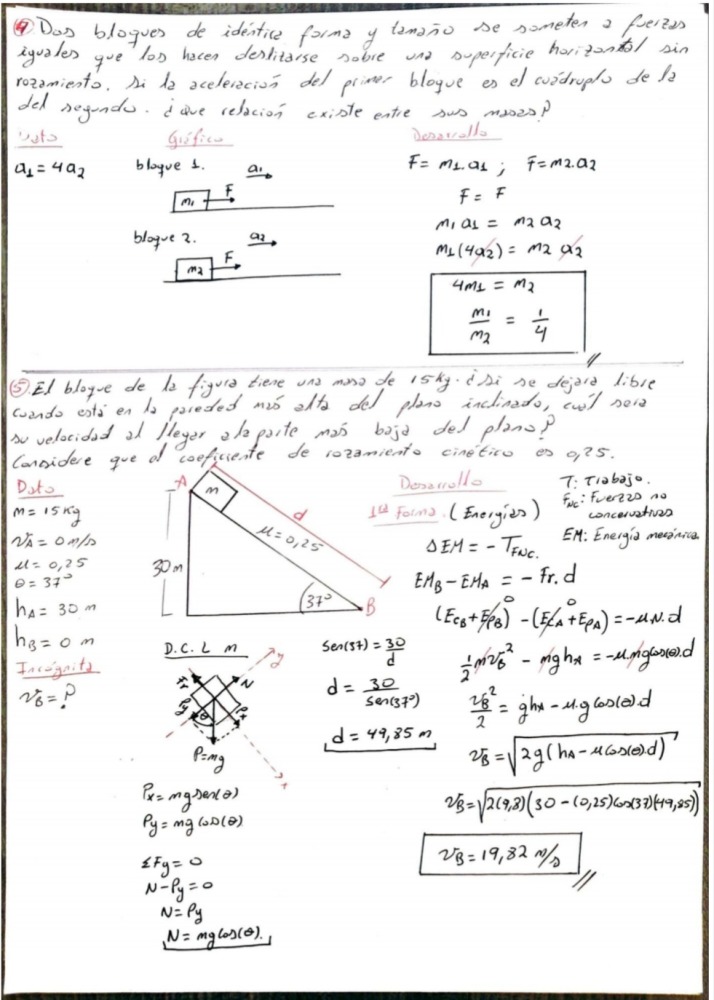 ④ Dos bloques de idéntica forma y tamaño se someten a fuerzas
iguales que los hacen deslitarse sobre una superficie horizontal sin
rozamiento. Si la aceleración del primer bloque es el cuádruplo de la
del segundo. ¿que relación existe entre sus masas?
Dato
a1 = 4a2
Gráfico
bloque 1. a1
m1 F
bloque 2. a2
m2 F
Desarrollo
F = m1.a1 ; F = m2.a2
F = F
m1 a1 = m2 a2
m1(4a2) = m2 a2
4m1 = m2
m1/m2 = 1/4
⑤ El bloque de la figura tiene una masa de 15kg. ¿Si se dejara libre
cuando está en la pareded más alta del plano inclinado, cuál sera
su velocidad al llegar a la parte más baja del plano?
Considere que el coeficiente de rozamiento cinético es 0,25.
Dato
m = 15 kg
VA = 0 m/s
μ = 0,25
θ = 37°
hA = 30 m
hB = 0 m
Incógnita
VB = ?
A
m
d
μ = 0,25
30 m
37°
B
D.C.L m
y
N
Fr
Py
θ
Px
P=mg
x
Px = mg sen(θ)
Py = mg cos(θ)
ΣFy = 0
N - Py = 0
N = Py
N = mg cos(θ).
Sen(37) = 30/d
d = 30/Sen(37°)
d = 49,85 m
Desarrollo
1ra Forma. (Energías)
T: Trabajo.
FNC: Fuerzas no
concervativas
EM: Energía mecánica.
ΔEM = - TFNC.
EMB - EMA = - Fr. d
(ECB + EPB) - (ECA + EPA) = - μ.N.d
0 0
1/2 mVB² - mghA = - μ.mg cos(θ).d
VB²/2 = ghA - μ.g cos(θ).d
VB = √2g(hA - μ cos(θ).d)
VB = √2(9,8)(30 - (0,25)cos(37)(49,85))
VB = 19,82 m/s